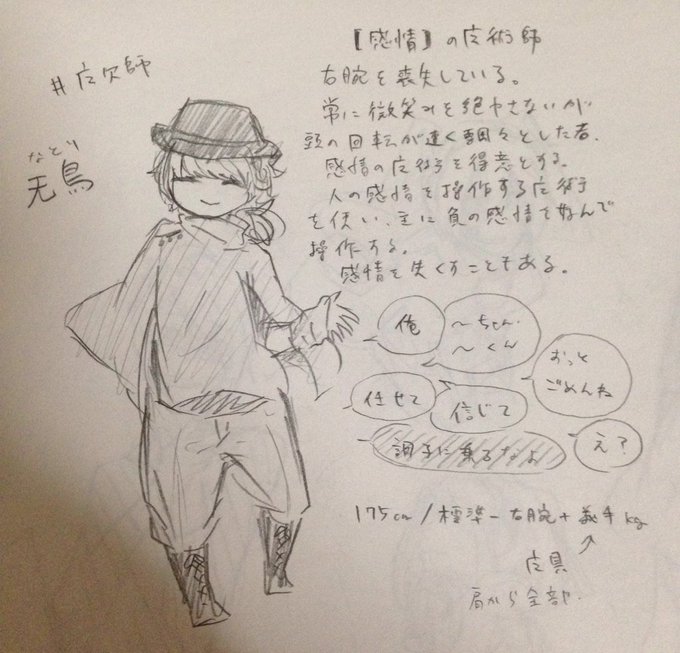 【感情】の
なとり
无鳥
右腕を喪失している。
常に微笑みを絶やさないが
頭の回転が速く飄々とした者.
感情の
を得意とする。
人の感情を操作する
を使い、主に負の感情を好んで
操作する。
感情を失くすこともある。
俺
〜ちゃん.
〜くん
おっと
ごめんね
任せて
信じて
え?
調子に乗るなよ
175cm/標準-右腕+義手kg
肩から全部.